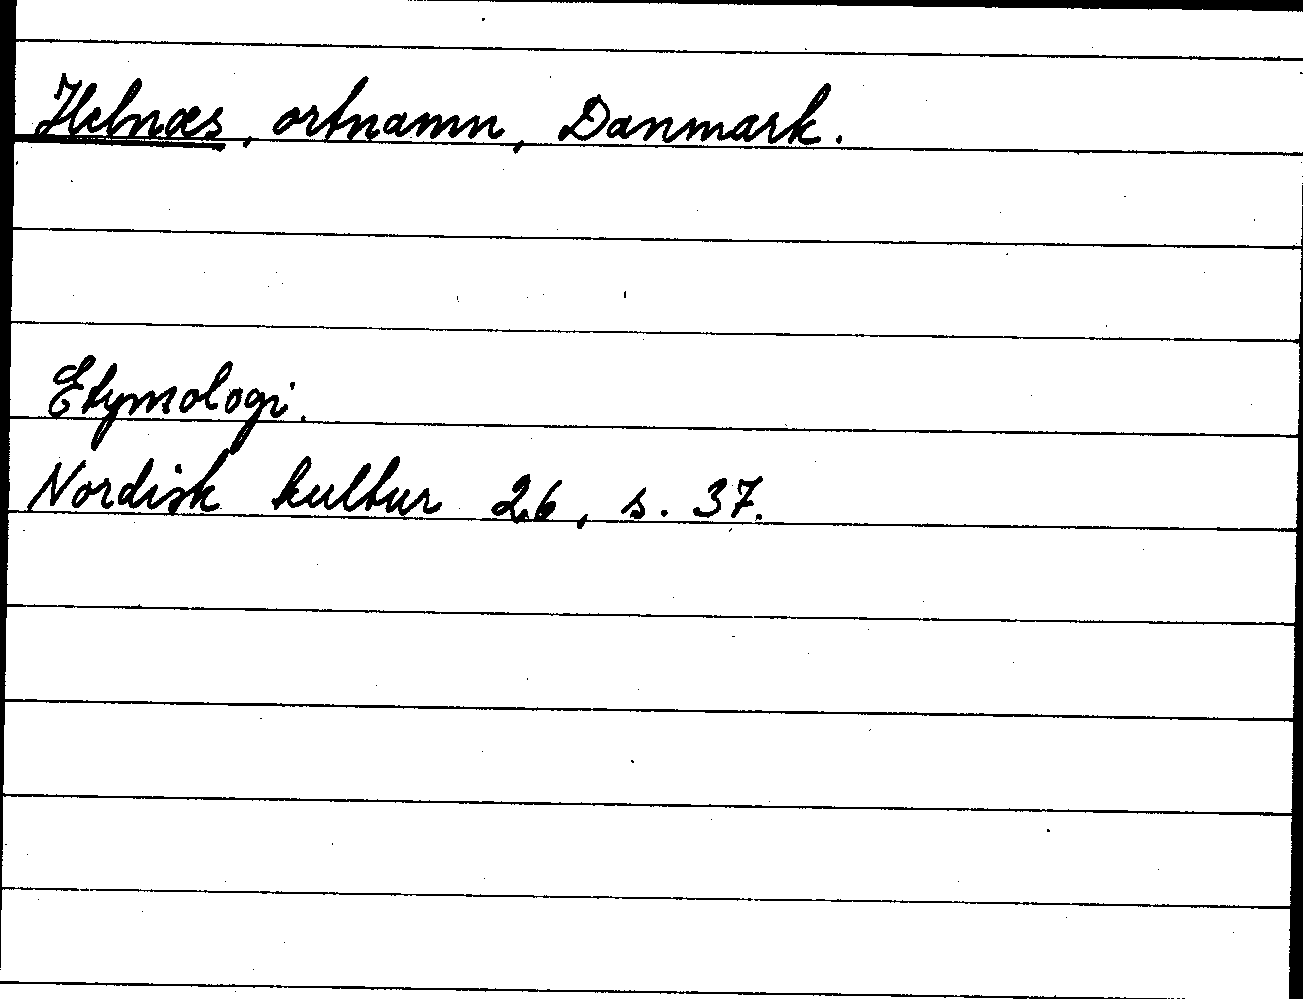 Helnæs, ortnamn, Danmark.
Etymologi.
Nordisk kultur 26, s. 37.